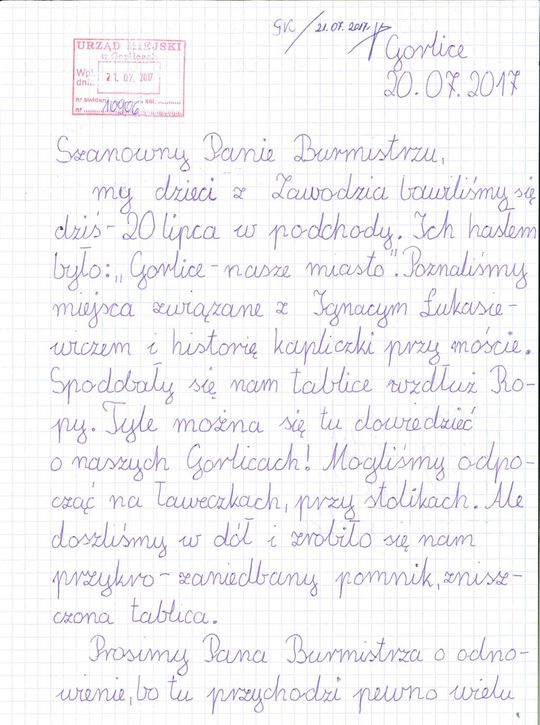 GK 21.07.2017
URZĄD MIEJSKI
w Gorlicach
Wpł. dnia. 21. 07. 2017
nr 10906
Gorlice
20.07.2017
Szanowny Panie Burmistrzu,
my dzieci z Zawodzia bawiliśmy się
dziś - 20 lipca w podchody. Ich hasłem
było: „Gorlice - nasze miasto". Poznaliśmy
miejsca związane z Ignacym Łukasie-
wiczem i historię kapliczki przy moście.
Spodobały się nam tablice wzdłuż Ro-
py. Tyle można się tu dowiedzieć
o naszych Gorlicach! Mogliśmy odpo-
cząć na ławeczkach, przy stolikach. Ale
doszliśmy w dół i zrobiło się nam
przykro - zaniedbany pomnik, znisz-
czona tablica.
Prosimy Pana Burmistrza o odno-
wienie, bo tu przychodzi pewno wielu